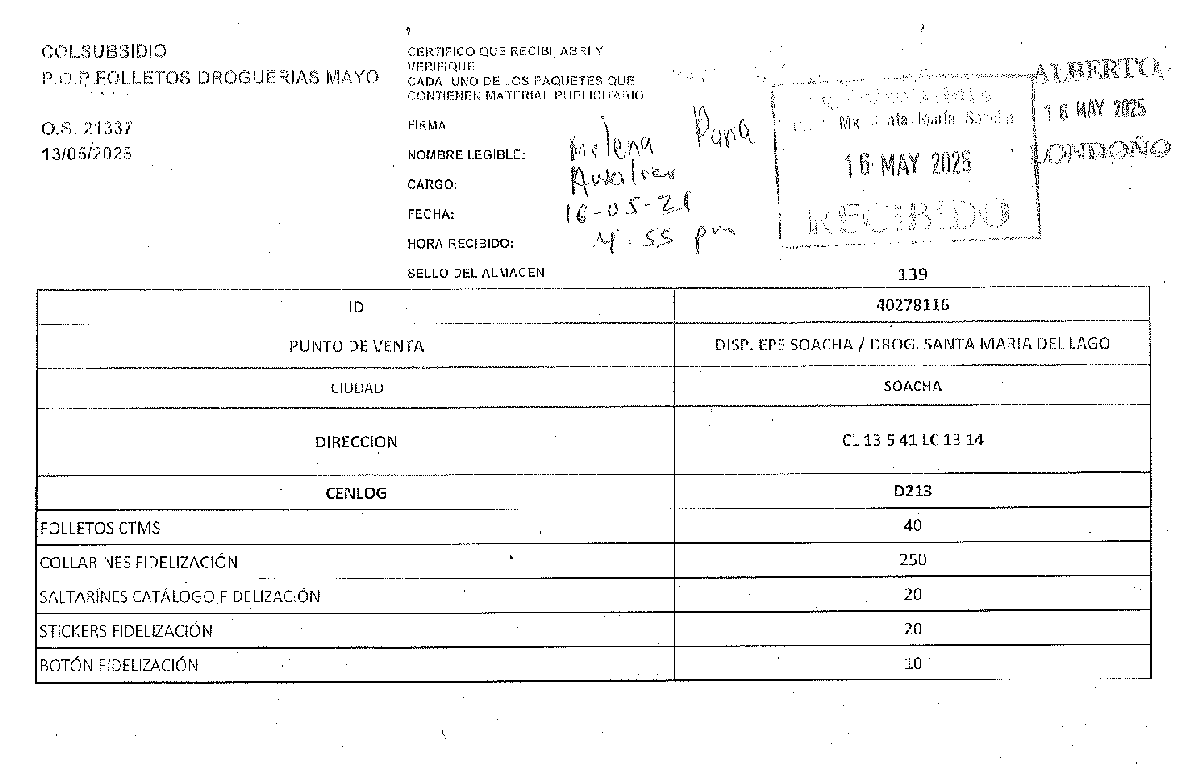 COLSUBSIDIO
P.O.P FOLLETOS DROGUERIAS MAYO
O.S. 21337
13/05/2025
CERTIFICO QUE RECIBI, ABRI Y
VERIFIQUE
CADA UNO DE LOS PAQUETES QUE
CONTIENEN MATERIAL PUBLICITARIO
FIRMA
NOMBRE LEGIBLE: Milena
CARGO:
FECHA: 16-05-21
HORA RECIBIDO: 4:55 pm
SELLO DEL ALMACEN
16 MAY 2025
RECIBIDO
ALBERTO
16 MAY 2025
LONDOÑO
139
ID 40278116
PUNTO DE VENTA DISP. EPS SOACHA / DROG. SANTA MARIA DEL LAGO
CIUDAD SOACHA
DIRECCION CL 13 5 41 LC 13 14
CENLOG D213
FOLLETOS CTMS 40
COLLARINES FIDELIZACIÓN 250
SALTARÍNES CATÁLOGO FIDELIZACIÓN 20
STICKERS FIDELIZACIÓN 20
BOTÓN FIDELIZACIÓN 10